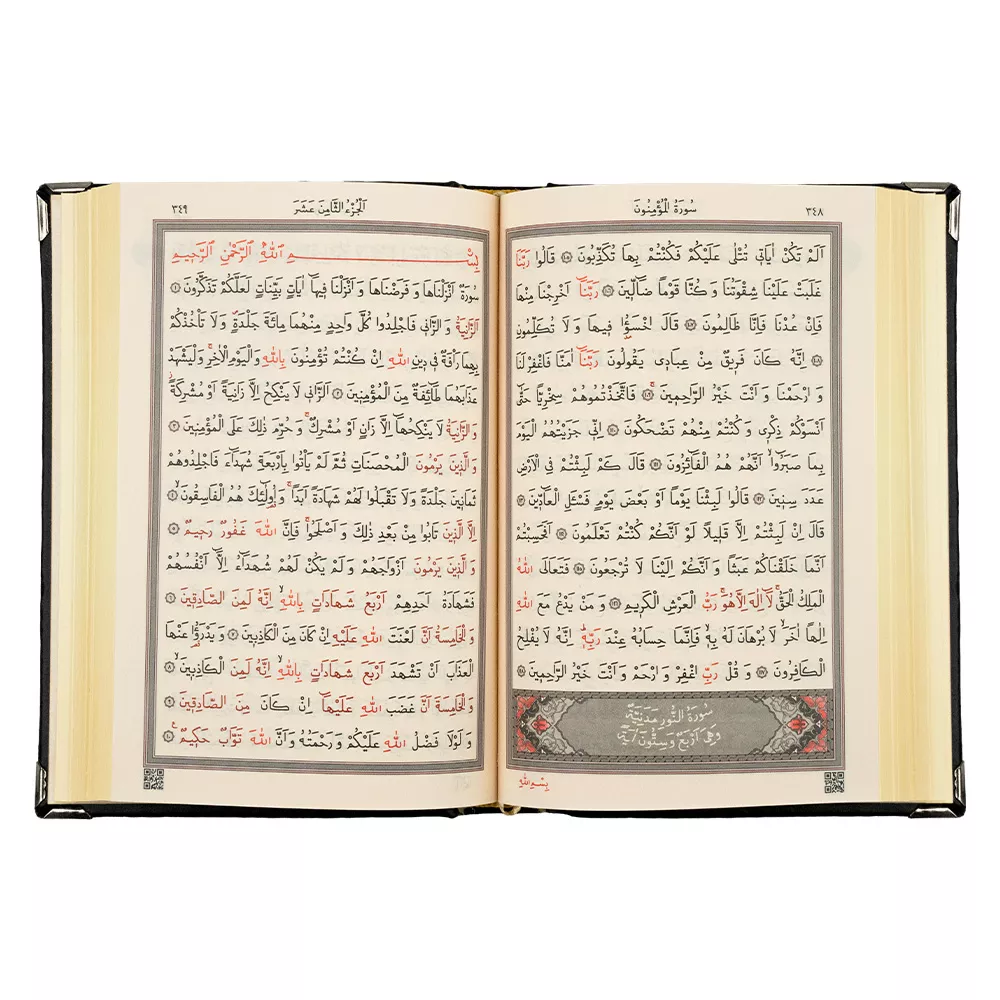 ٣٤٨ سُورَةُ الْمُؤْمِنُونَ
اَلَمْ تَكُنْ اٰيَاتٖى تُتْلٰى عَلَيْكُمْ فَكُنْتُمْ بِهَا تُكَذِّبُونَ ﴿١٠٥﴾ قَالُوا رَبَّنَا
غَلَبَتْ عَلَيْنَا شِقْوَتُنَا وَ كُنَّا قَوْمًا ضَٓالّٖينَ ﴿١٠٦﴾ رَبَّنَٓا اَخْرِجْنَا مِنْهَا
فَاِنْ عُدْنَا فَاِنَّا ظَالِمُونَ ﴿١٠٧﴾ قَالَ اخْسَؤُ۫ا فٖيهَا وَ لَا تُكَلِّمُونِ
﴿١٠٨﴾ اِنَّهُ كَانَ فَرٖيقٌ مِنْ عِبَادٖى يَقُولُونَ رَبَّنَٓا اٰمَنَّا فَاغْفِرْ لَنَا
وَ ارْحَمْنَا وَ اَنْتَ خَيْرُ الرَّاحِمٖينَ ﴿١٠٩﴾ فَاتَّخَذْتُمُوهُمْ سِخْرِيًّا حَتّٰٓى
اَنْسَوْكُمْ ذِكْرٖى وَ كُنْتُمْ مِنْهُمْ تَضْحَكُونَ ﴿١١٠﴾ اِنّٖى جَزَيْتُهُمُ الْيَوْمَ
بِمَا صَبَرُٓوا اَنَّهُمْ هُمُ الْفَٓائِزُونَ ﴿١١١﴾ قَالَ كَمْ لَبِثْتُمْ فِى الْاَرْضِ
عَدَدَ سِنٖينَ ﴿١١٢﴾ قَالُوا لَبِثْنَا يَوْمًا اَوْ بَعْضَ يَوْمٍ فَسْـَٔلِ الْعَٓادّٖينَ ﴿١١٣﴾
قَالَ اِنْ لَبِثْتُمْ اِلَّا قَلٖيلًا لَوْ اَنَّكُمْ كُنْتُمْ تَعْلَمُونَ ﴿١١٤﴾ اَفَحَسِبْتُمْ
اَنَّمَا خَلَقْنَاكُمْ عَبَثًا وَ اَنَّكُمْ اِلَيْنَا لَا تُرْجَعُونَ ﴿١١٥﴾ فَتَعَالَى اللّٰهُ
الْمَلِكُ الْحَقُّ لَٓا اِلٰهَ اِلَّا هُوَ رَبُّ الْعَرْشِ الْكَرٖيمِ ﴿١١٦﴾ وَ مَنْ يَدْعُ مَعَ اللّٰهِ
اِلٰهًا اٰخَرَ لَا بُرْهَانَ لَهُ بِهٖ فَاِنَّمَا حِسَابُهُ عِنْدَ رَبِّهٖ اِنَّهُ لَا يُفْلِحُ
الْكَافِرُونَ ﴿١١٧﴾ وَ قُلْ رَبِّ اغْفِرْ وَ ارْحَمْ وَ اَنْتَ خَيْرُ الرَّاحِمٖينَ ﴿١١٨﴾
سُورَةُ النُّورِ مَدَنِيَّةٌ
وَهِىَ اَرْبَعٌ وَ سِتُّونَ اٰيَةً
بِسْمِ اللّٰهِ
اَلْجُزْءُ الثَّامِنَ عَشَرَ ٣٤٩
بِسْمِ اللّٰهِ الرَّحْمٰنِ الرَّحٖيمِ
سُورَةٌ اَنْزَلْنَاهَا وَ فَرَضْنَاهَا وَ اَنْزَلْنَا فٖيهَٓا اٰيَاتٍ بَيِّنَاتٍ لَعَلَّكُمْ تَذَكَّرُونَ ﴿١﴾
اَلزَّانِيَةُ وَ الزَّانٖى فَاجْلِدُوا كُلَّ وَاحِدٍ مِنْهُمَا مِائَةَ جَلْدَةٍ وَ لَا تَأْخُذْكُمْ
بِهِمَا رَأْفَةٌ فٖى دٖينِ اللّٰهِ اِنْ كُنْتُمْ تُؤْمِنُونَ بِاللّٰهِ وَ الْيَوْمِ الْاٰخِرِ وَ لْيَشْهَدْ
عَذَابَهُمَا طَٓائِفَةٌ مِنَ الْمُؤْمِنٖينَ ﴿٢﴾ اَلزَّانٖى لَا يَنْكِحُ اِلَّا زَانِيَةً اَوْ مُشْرِكَةً
وَ الزَّانِيَةُ لَا يَنْكِحُهَٓا اِلَّا زَانٍ اَوْ مُشْرِكٌ وَ حُرِّمَ ذٰلِكَ عَلَى الْمُؤْمِنٖينَ ﴿٣﴾
وَ الَّذٖينَ يَرْمُونَ الْمُحْصَنَاتِ ثُمَّ لَمْ يَأْتُوا بِاَرْبَعَةِ شُهَدَٓاءَ فَاجْلِدُوهُمْ
ثَمَانٖينَ جَلْدَةً وَ لَا تَقْبَلُوا لَهُمْ شَهَادَةً اَبَدًا وَ اُولٰٓئِكَ هُمُ الْفَاسِقُونَ ﴿٤﴾
اِلَّا الَّذٖينَ تَابُوا مِنْ بَعْدِ ذٰلِكَ وَ اَصْلَحُوا فَاِنَّ اللّٰهَ غَفُورٌ رَحٖيمٌ ﴿٥﴾
وَ الَّذٖينَ يَرْمُونَ اَزْوَاجَهُمْ وَ لَمْ يَكُنْ لَهُمْ شُهَدَٓاءُ اِلَّٓا اَنْفُسُهُمْ
فَشَهَادَةُ اَحَدِهِمْ اَرْبَعُ شَهَادَاتٍ بِاللّٰهِ اِنَّهُ لَمِنَ الصَّادِقٖينَ ﴿٦﴾
وَ الْخَامِسَةُ اَنَّ لَعْنَتَ اللّٰهِ عَلَيْهِ اِنْ كَانَ مِنَ الْكَاذِبٖينَ ﴿٧﴾ وَ يَدْرَؤُا عَنْهَا
الْعَذَابَ اَنْ تَشْهَدَ اَرْبَعَ شَهَادَاتٍ بِاللّٰهِ اِنَّهُ لَمِنَ الْكَاذِبٖينَ ﴿٨﴾
وَ الْخَامِسَةَ اَنَّ غَضَبَ اللّٰهِ عَلَيْهَٓا اِنْ كَانَ مِنَ الصَّادِقٖينَ ﴿٩﴾
وَ لَوْلَا فَضْلُ اللّٰهِ عَلَيْكُمْ وَ رَحْمَتُهُ وَ اَنَّ اللّٰهَ تَوَّابٌ حَكٖيمٌ ﴿١٠﴾